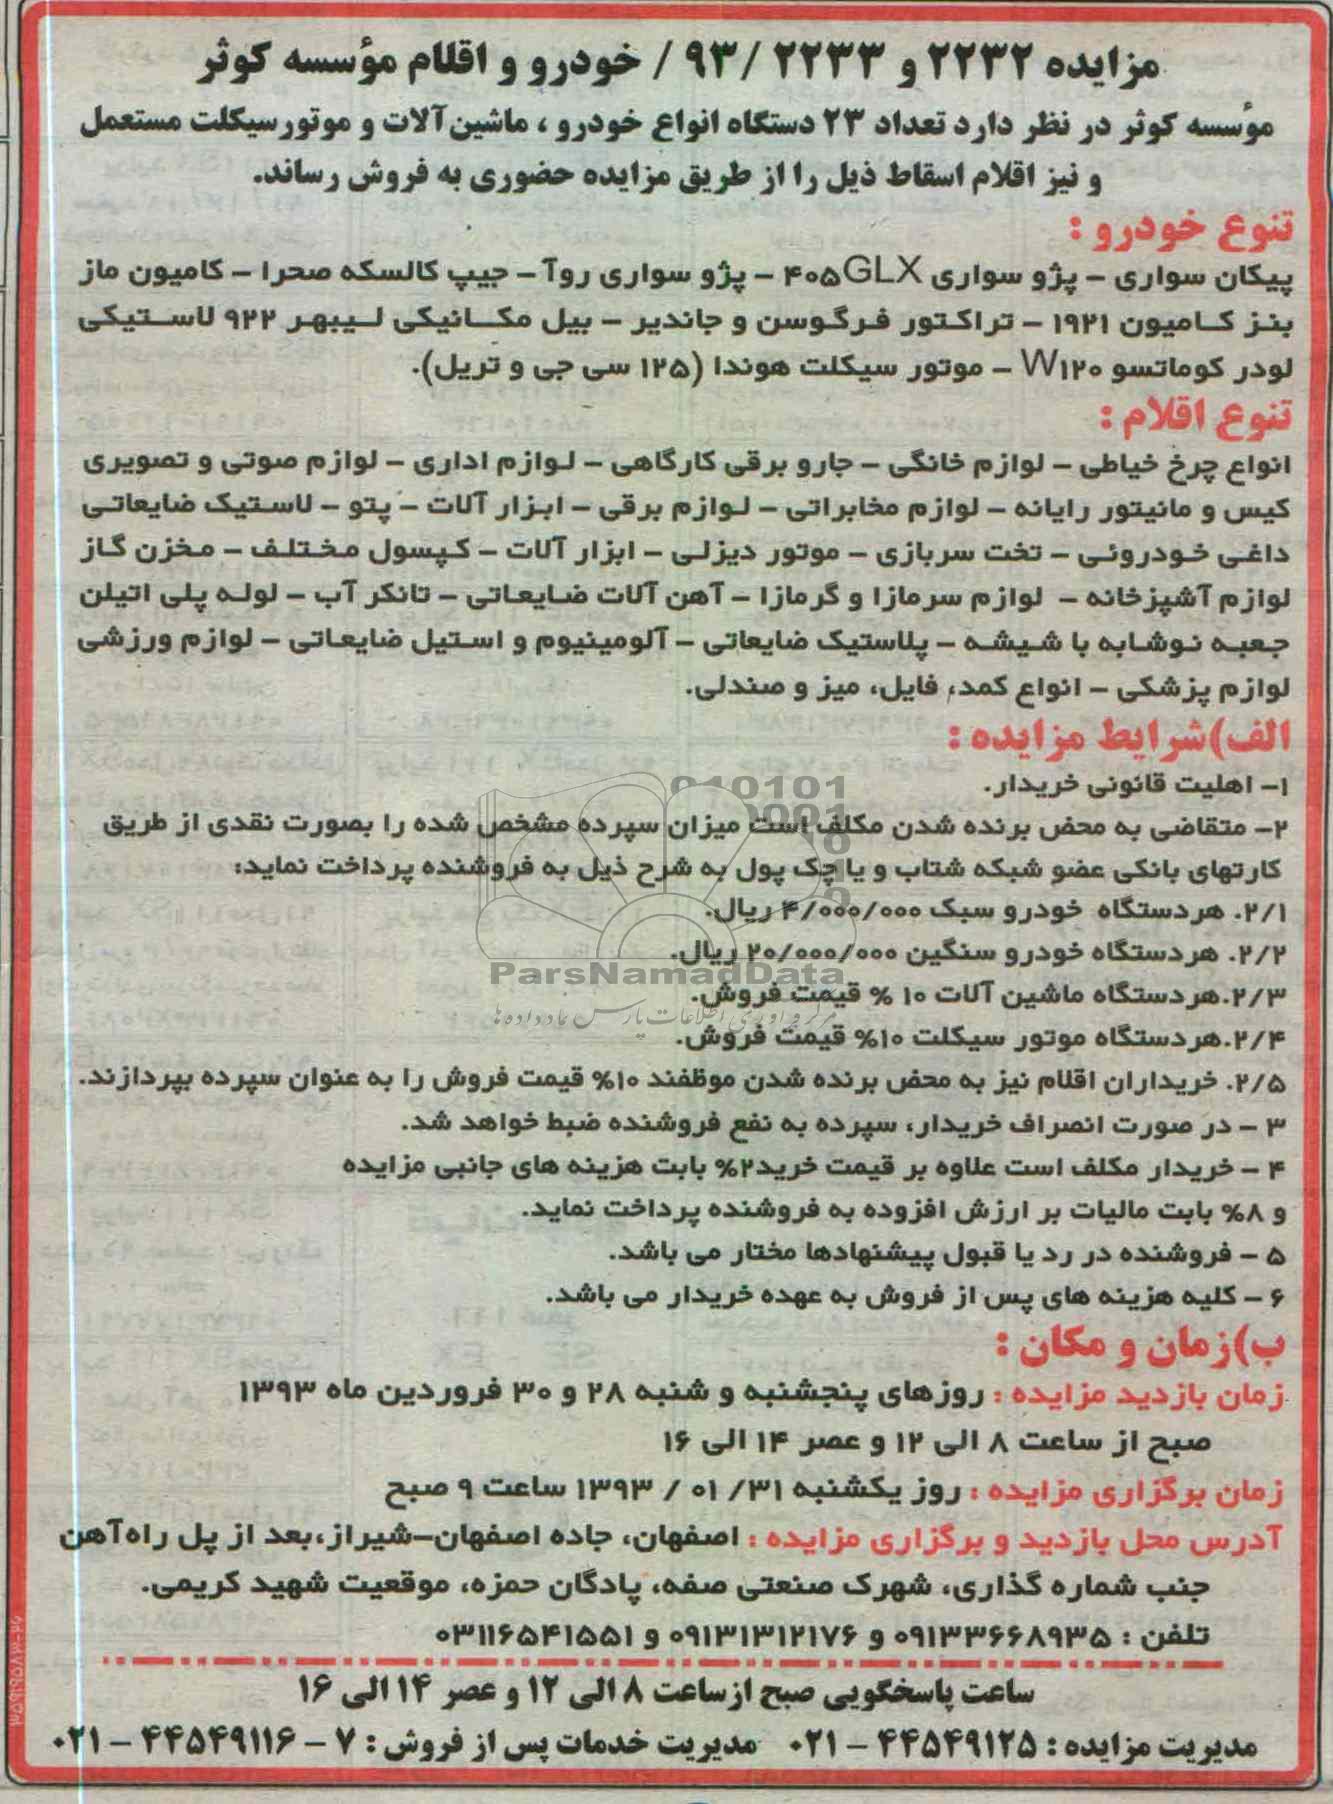 مزایده ۲۲۳۲ و ۲۲۳۳ /۹۳ / خودرو و اقلام مؤسسه کوثر
مؤسسه کوثر در نظر دارد تعداد ۲۳ دستگاه انواع خودرو ، ماشین آلات و موتورسیکلت مستعمل
و نیز اقلام اسقاط ذیل را از طریق مزایده حضوری به فروش رساند.
تنوع خودرو :
پیکان سواری – پژو سواری ۴۰۵GLX – پژو سواری روآ – جیپ کالسکه صحرا – کامیون ماز
بنز کامیون ۱۹۲۱ – تراکتور فرگوسن و جاندیر – بیل مکانیکی لیبهر ۹۲۲ لاستیکی
لودر کوماتسو W۱۲۰ – موتور سیکلت هوندا (۱۲۵ سی جی و تریل).
تنوع اقلام :
انواع چرخ خیاطی – لوازم خانگی – جارو برقی کارگاهی – لوازم اداری – لوازم صوتی و تصویری
کیس و مانیتور رایانه – لوازم مخابراتی – لوازم برقی – ابزار آلات – پتو – لاستیک ضایعاتی
داغی خودروئی – تخت سربازی – موتور دیزلی – ابزار آلات – کپسول مختلف – مخزن گاز
لوازم آشپزخانه – لوازم سرمازا و گرمازا – آهن آلات ضایعاتی – تانکر آب – لوله پلی اتیلن
جعبه نوشابه با شیشه – پلاستیک ضایعاتی – آلومینیوم و استیل ضایعاتی – لوازم ورزشی
لوازم پزشکی – انواع کمد، فایل، میز و صندلی.
الف)شرایط مزایده :
۱– اهلیت قانونی خریدار.
۲– متقاضی به محض برنده شدن مکلف است میزان سپرده مشخص شده را بصورت نقدی از طریق
کارتهای بانکی عضو شبکه شتاب و یا چک پول به شرح ذیل به فروشنده پرداخت نماید:
۲/۱. هردستگاه خودرو سبک ۴/۰۰۰/۰۰۰ ریال.
۲/۲. هردستگاه خودرو سنگین ۲۰/۰۰۰/۰۰۰ ریال.
ParsNamadData
۲/۳.هردستگاه ماشین آلات ۱۰ % قیمت فروش.
مرکز فرآوری اطلاعات پارس نماد داده ها
۲/۴.هردستگاه موتور سیکلت ۱۰% قیمت فروش.
۲/۵. خریداران اقلام نیز به محض برنده شدن موظفند ۱۰% قیمت فروش را به عنوان سپرده بپردازند.
۳ – در صورت انصراف خریدار، سپرده به نفع فروشنده ضبط خواهد شد.
۴ – خریدار مکلف است علاوه بر قیمت خرید۲% بابت هزینه های جانبی مزایده
و ۸% بابت مالیات بر ارزش افزوده به فروشنده پرداخت نماید.
۵ – فروشنده در رد یا قبول پیشنهادها مختار می باشد.
۶ – کلیه هزینه های پس از فروش به عهده خریدار می باشد.
ب)زمان و مکان :
زمان بازدید مزایده : روزهای پنجشنبه و شنبه ۲۸ و ۳۰ فروردین ماه ۱۳۹۳
صبح از ساعت ۸ الی ۱۲ و عصر ۱۴ الی ۱۶
زمان برگزاری مزایده : روز یکشنبه ۳۱/ ۰۱ / ۱۳۹۳ ساعت ۹ صبح
آدرس محل بازدید و برگزاری مزایده : اصفهان، جاده اصفهان–شیراز،بعد از پل راه‌آهن
جنب شماره گذاری، شهرک صنعتی صفه، پادگان حمزه، موقعیت شهید کریمی.
تلفن : ۰۹۱۳۳۶۶۸۹۳۵ و ۰۹۱۳۱۳۱۲۱۷۶ و ۰۳۱۱۶۵۴۱۵۵۱
ساعت پاسخگویی صبح ازساعت ۸ الی ۱۲ و عصر ۱۴ الی ۱۶
مدیریت مزایده : ۴۴۵۴۹۱۲۵ – ۰۲۱ مدیریت خدمات پس از فروش : ۷ – ۴۴۵۴۹۱۱۶ – ۰۲۱